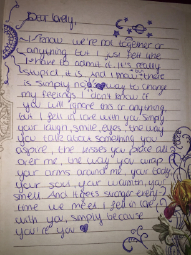 Dear lovely,
I know we're not together or
anything but I just feel like
I have to admit it. It's really
stupid, it is, and I know there
is simply no way to change
my feelings. I don't know if
you will ignore this or anything,
but I fell in love with you. Simply
your laugh, smile, eyes, the way
you talk about something you
aspire, the kisses you place all
over me, the way you wrap
your arms around me, your body
your scars, your , your
smell. And it gets stronger every
time we meet. I fell in love
with you, simply because
you're you